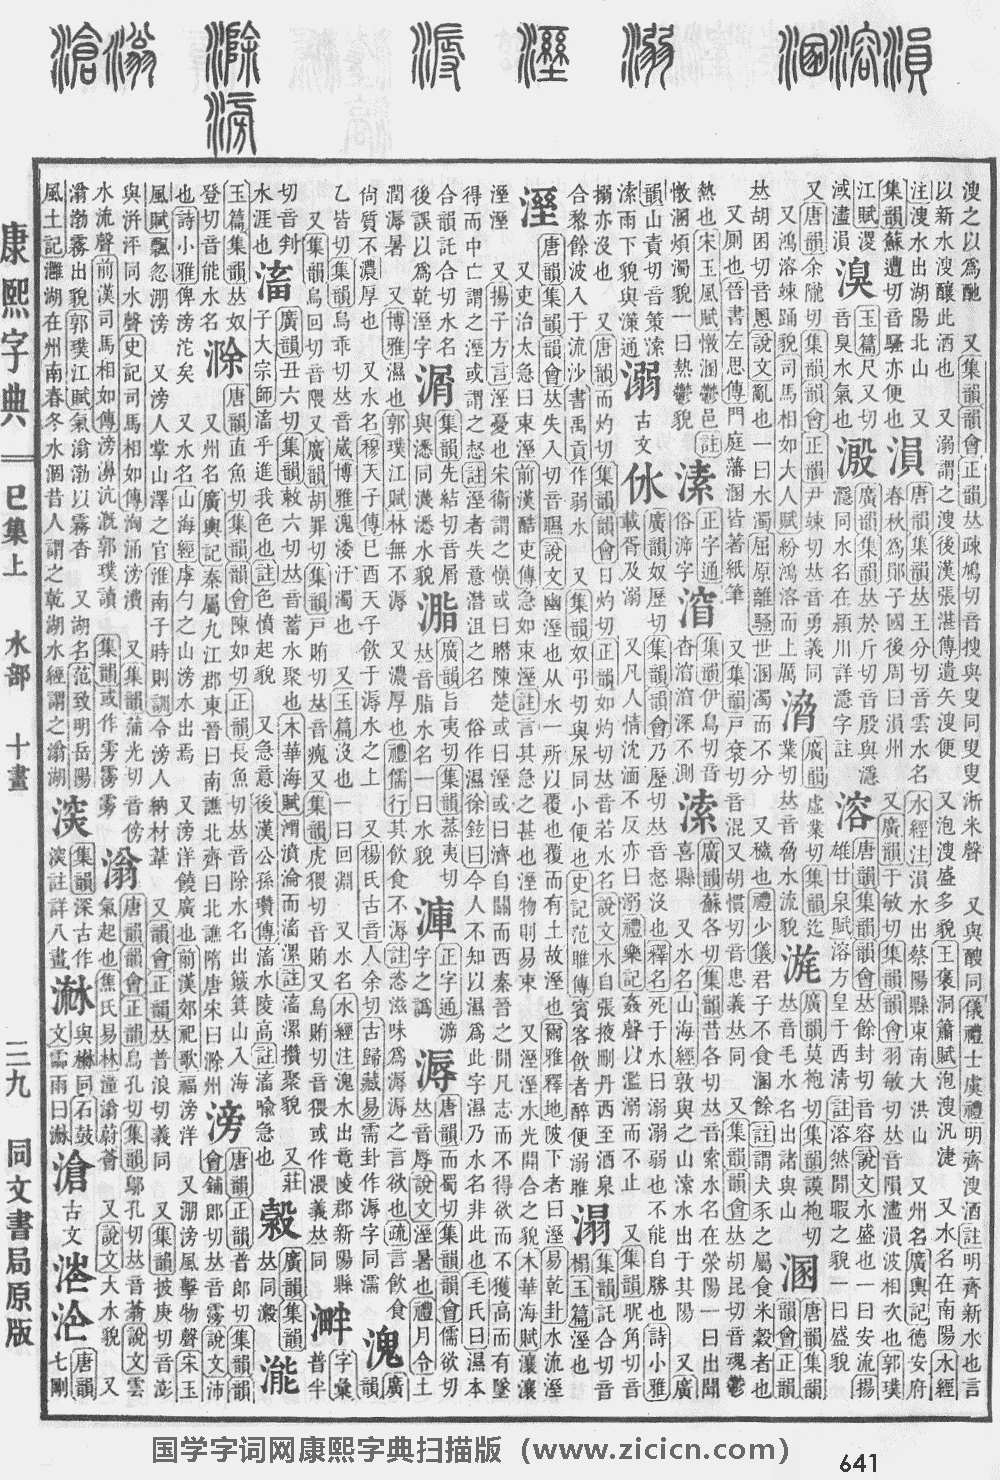 康熙字典 巳集上 水部 十畫 三九 同文書局原版
溲之以爲酏 又集韻韻會正韻𠀤疎鳩切音搜與叟同叟叟淅米聲 又與醙同儀禮士虞禮明齊溲酒註明齊新水也言
以新水溲釀此酒也 又溺謂之溲後漢張湛傳遺矢溲便 又泡溲盛多貌王褒洞簫賦泡溲汎㴙 又水名在南陽水經
注溲水出湖陽北山 又集韻蘇遭切音騷亦便也
溳 唐韻集韻𠀤王分切音雲水名水經注溳水出蔡陽縣東南大洪山 又州名廣輿記德安府春秋爲鄖子國後周曰溳州 又廣韻于敏切集韻韻會羽敏切𠀤音隕溳盪溳波相次也郭璞江賦溭淢盪溳
溴 玉篇尺又切音臭水氣也
溵 廣韻集韻𠀤於斤切音殷與濦濦同水名在潁川詳濦字註
溶 唐韻集韻韻會𠀤餘封切音容說文水盛也一曰安流揚雄甘泉賦溶方皇于西淸註溶然閒暇之貌一曰盛貌 又唐韻余隴切集韻韻會正韻尹竦切𠀤音勇義同 又鴻溶竦踊貌司馬相如大人賦紛鴻溶而上厲
㴽 廣韻虛業切集韻迄業切𠀤音脅水流貌
㴘 廣韻莫袍切集韻謨袍切𠀤音毛水名出諸與山
溷 唐韻集韻韻會正韻𠀤胡困切音慁說文亂也一曰水濁也屈原離騷世溷濁而不分 又穢也禮少儀君子不食溷餘註謂犬豕之屬食米穀者也 又厠也晉書左思傳門庭藩溷皆著紙筆 又集韻戸衮切音混又胡慣切音患義𠀤同 又集韻韻會𠀤胡昆切音魂鬱熱也宋玉風賦憞溷鬱邑註憞溷煩濁貌一曰熱鬱貌
溸 正字通俗渧字
溍 集韻伊鳥切音杳溍溍深不測
溹 廣韻蘇各切集韻昔各切𠀤音索水名在滎陽一曰出聞喜縣 又水名山海經敦與之山溹水出于其陽 又廣韻山責切音策溹溹雨下貌與㵻通
溺 古文㲻 廣韻奴歷切集韻韻會乃歷切𠀤音惄沒也釋名死于水曰溺溺弱也不能自勝也詩小雅載胥及溺 又凡人情沈湎不反亦曰溺禮樂記姦聲以濫溺而不止 又集韻昵角切音搦亦沒也 又唐韻而灼切集韻韻會日灼切正韻如灼切𠀤音若水名說文水自張掖刪丹西至酒泉合黎餘波入于流沙書禹貢作弱水 又集韻奴弔切與尿同小便也史記范睢傳賓客飮者醉便溺睢
溻 集韻託合切音榻玉篇溼也
溼 唐韻集韻韻會𠀤失入切音隰說文幽溼也从水一所以覆也覆而有土故溼也爾雅釋地陂下者曰溼易乾卦水流溼 又吏治太急曰束溼前漢酷吏傳急如束溼註言其急之甚也溼物則易束 又溼溼水光開合之貌木華海賦瀼瀼溼溼 又揚子方言溼憂也宋衞謂之愼或曰𣊡陳楚或曰溼或曰濟自關而西秦晉之閒凡志而不得欲而不獲高而有墜得而中亡謂之溼或謂之惄註溼者失意潛沮之名 俗作濕徐鉉曰今人不知以濕爲此字濕乃水名非此也毛氏曰濕本合韻託合切水名後誤以爲乾溼字
㴮 集韻先結切音屑與㴽同㵝㴮水貌
㴯 廣韻旨夷切集韻蒸夷切𠀤音脂水名一曰水貌
㴑 正字通滹字之譌
溽 唐韻而蜀切集韻韻會儒欲切𠀤音辱說文溼暑也禮月令土潤溽暑 又博雅濕也郭璞江賦林無不溽 又濃厚也禮儒行其飮食不溽註恣滋味爲溽溽之言欲也疏言飮食尙質不濃厚也 又水名穆天子傳巳酉天子飮于溽水之上 又楊氏古音人余切古歸藏易需卦作溽字同濡
溾 廣韻乙皆切集韻烏乖切𠀤音崴博雅溾涹汙濁也 又玉篇沒也一曰回淵 又水名水經注溾水出竟陵郡新陽縣 又集韻烏回切音隈又廣韻胡罪切集韻戸賄切𠀤音瘣又集韻虎猥切音賄又烏賄切音猥或作渨義𠀤同
溿 字彙普半切音判水涯也
滀 廣韻丑六切集韻敕六切𠀤音蓄水聚也木華海賦㵽濆淪而滀漯註滀漯攢聚貌 又莊子大宗師滀乎進我色也註色憤起貌 又急意後漢公孫瓚傳滀水陵高註滀喻急也
㵠 𠀤同瀫
㴳 廣韻集韻玉篇集韻𠀤奴登切音能水名
滁 唐韻直魚切集韻韻會陳如切正韻長魚切𠀤音除水名出簸箕山入海 又州名廣輿記秦屬九江郡東晉曰南譙北齊曰北譙隋唐宋曰滁州
滂 唐韻正韻普郎切集韻韻會鋪郎切𠀤音雱說文沛也詩小雅俾滂沱矣 又水名山海經虖勺之山滂水出焉 又滂洋饒廣也前漢郊祀歌福滂洋 又淜滂風擊物聲宋玉風賦飄忽淜滂 又滂人掌山澤之官淮南子時則訓令滂人納材葦 又韻會正韻𠀤普浪切義同 又集韻披庚切音澎與洴泙同水聲史記司馬相如傳洶涌滂㵒 又集韻蒲光切音傍水流聲前漢司馬相如傳滂濞沆溉郭璞讀 集韻或作雱霶雱
滃 唐韻韻會正韻𠀤烏孔切集韻鄔孔切𠀤音蓊說文雲氣起也焦氏易林潼滃蔚薈 又說文大水貌 又滃渤霧出貌郭璞江賦氣滃渤以霧杳 又湖名范致明岳陽風土記灉湖在州南春冬水涸昔人謂之乾湖水經謂之滃湖
㴸 集韻深古作㴸註詳八畫
㵉 與㵉同石鼓文霝雨曰㵉
滄 古文㵂㳴 唐韻七剛
国学字词网康熙字典扫描版（www.zicicn.com）
641